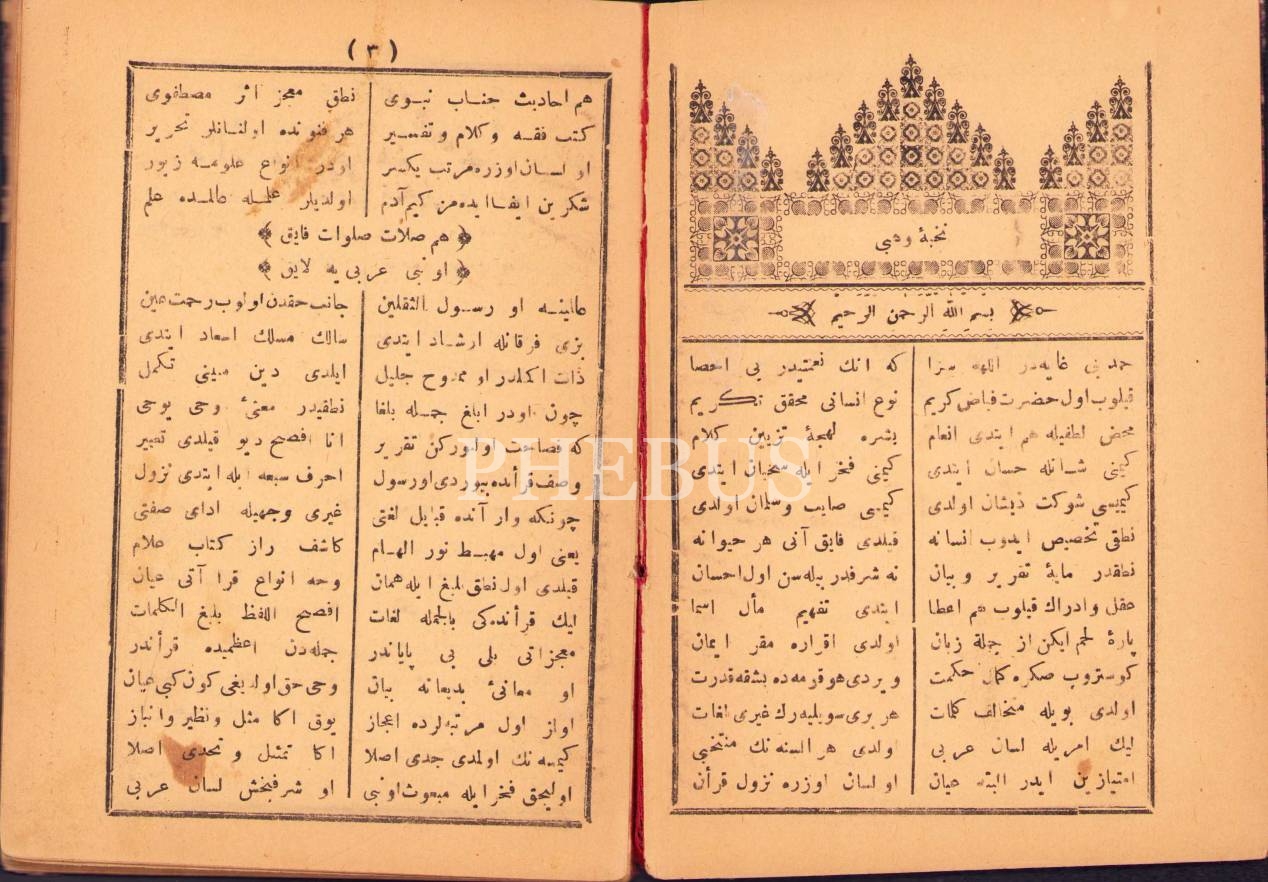 نخبهٔ وهبی
بسم الله الرحمن الرحیم
حمد بی غایه‌در اللهه سزا که انك نعمتیدر بی احصا
قیلوب اول حضرت فیاض کریم نوع انسانی محقق تکریم
محض لطفیله هم ایتدی انعام بشره لهجهٔ تزیین کلام
کیمنی شانله حسان ایتدی کیمنی فخر ایله سحبان ایتدی
کیمیسی شوکت ذیشان اولدی کیمسی صایب وسلمان اولدی
نطقی تخصیص ایدوب انسانه قیلدی فایق آنی هر حیوانه
نطقدر مایهٔ تقریر و بیان نه شرفدر بیله‌سن اول احسان
عقل وادراك قیلوب هم اعطا ایتدی تفهیم مأل اسما
پارهٔ لحم ایکن از جملهٔ زبان اولدی اقراره مقر ایمان
کوستروب صکره کمال حکمت ویردی هو قومه ده بشقه قدرت
اولدی بویله متخالف کلمات هر بری سویلیه‌رك غیری لغات
لیك امریله لسان عربی اولدی هر السنه‌نك منتخبی
امتیازین ایدر البته عیان او لسان اوزره نزول قرأن
( ٣ )
هم احادیث جناب نبوی نطق معجز اثر مصطفوی
کتب فقه وکلام وتفسیر هر فنونده اولنانلر تحریر
او لسان اوزره مرتب یکسر اودر انواع علومه زیور
شکرین ایفا ایده‌مز کیم آدم اولدیلر علمله عالمده علم
﴿ هم صلات صلوات فایق ﴾
﴿ او نبی عربی‌یه لایق ﴾
عالمینه او رسول الثقلین جانب حقدن اولوب رحمت عین
بزی فرقانله ارشاد ایتدی سالك مسلك اسعاد ایتدی
ذات اکملدر او ممدوح جلیل ایلدی دین مبینی تکمل
چون اودر ابلغ جمله بلغا نطقیدر معنیٔ وحی یوحی
که فصاحت اولنورکن تقریر انا افصح دیو قیلدی تعبیر
وصف قرأنده بیوردی اورسول احرف سبعه ایله ایتدی نزول
چونکه وار آنده قبایل لغتی غیری وجهیله ادای صفتی
یعنی اول مهبط نور الهام کاشف راز کتاب علام
قیلدی اول نطق بلیغ ایله همان وجه انواع قرا آتی عیان
لیك قرأنده‌کی بالجمله لغات افصح اللفظ بلیغ الکلمات
معجزاتی بلی بی پایاندر جمله‌دن اعظمیده قرأندر
او معانیٔ بدیعانه بیان وحی حق اولدیغی کون کبی عیان
اواز اول مرتبه‌لرده اعجاز یوق اکا مثل ونظیر وانباز
کیمسه‌نك اولمدی جدی اصلا اکا تمثل و تحدی اصلا
اولیجق فخر ایله مبعوث اونبی او شرفبخش لسان عربی
PHEBUS